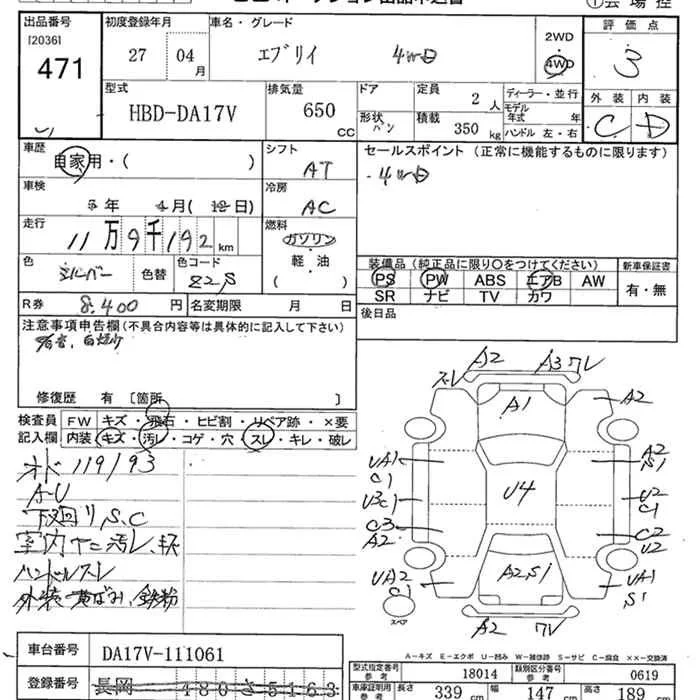 出品番号 初度登録年月 車名・グレード 評価点
[2036] 471 27 04 月 エブリイ 4WD 2WD 4WD 3
型式 排気量 ドア 定員 ディーラー・並行 外装 内装
HBD-DA17V 650 CC 形状 バン 2 人 積載 350 kg モデル年式 年 ハンドル 左・右 C D
車歴 自家用・( ) シフト AT セールスポイント (正常に機能するものに限ります)
・4WD
車検 年 月(日) 冷房 AC
走行 11万9千192 km 燃料 ガソリン
軽・油
( )
色 シルバー 色替 色コード Z2S
装備品 (純正品に限り○をつけてください) 新車保証書
PS PW ABS エアB AW 有・無
SR ナビ TV カワ
R券 8,400 円 名変期限 月 日 後日品
注意事項申告欄(不具合内容等は具体的に記入して下さい)
修復歴 有 [箇所 ]
検査員 FW キズ・飛石・ヒビ割・リペア跡・×要
記入欄 内装 キズ・汚レ・コゲ・穴・スレ・キレ・破レ
オド119193
A-U
下回りS,C
室内ヤニ汚レ、
ハンドルスレ
外装黄ばみ、鉄粉
A2 A3 ワレ
ズレ A1 A2
UA1 C1 A2 S1
U3 C1 U4 U2 C1
C3 A2 C2 U2
UA2 C1 A2,S1 UA1 S1
スペア A2 ワレ
A-キズ E-エクボ U-凹み W-補修跡 S-サビ C-腐食 ××-交換済
車台番号 DA17V-111061
登録番号 長岡 480 さ5163
型式指定番号 参考 18014 類別区分番号 参考 0619
車庫証明用 参考 長さ 339 cm 幅 147 cm 高さ 189 cm